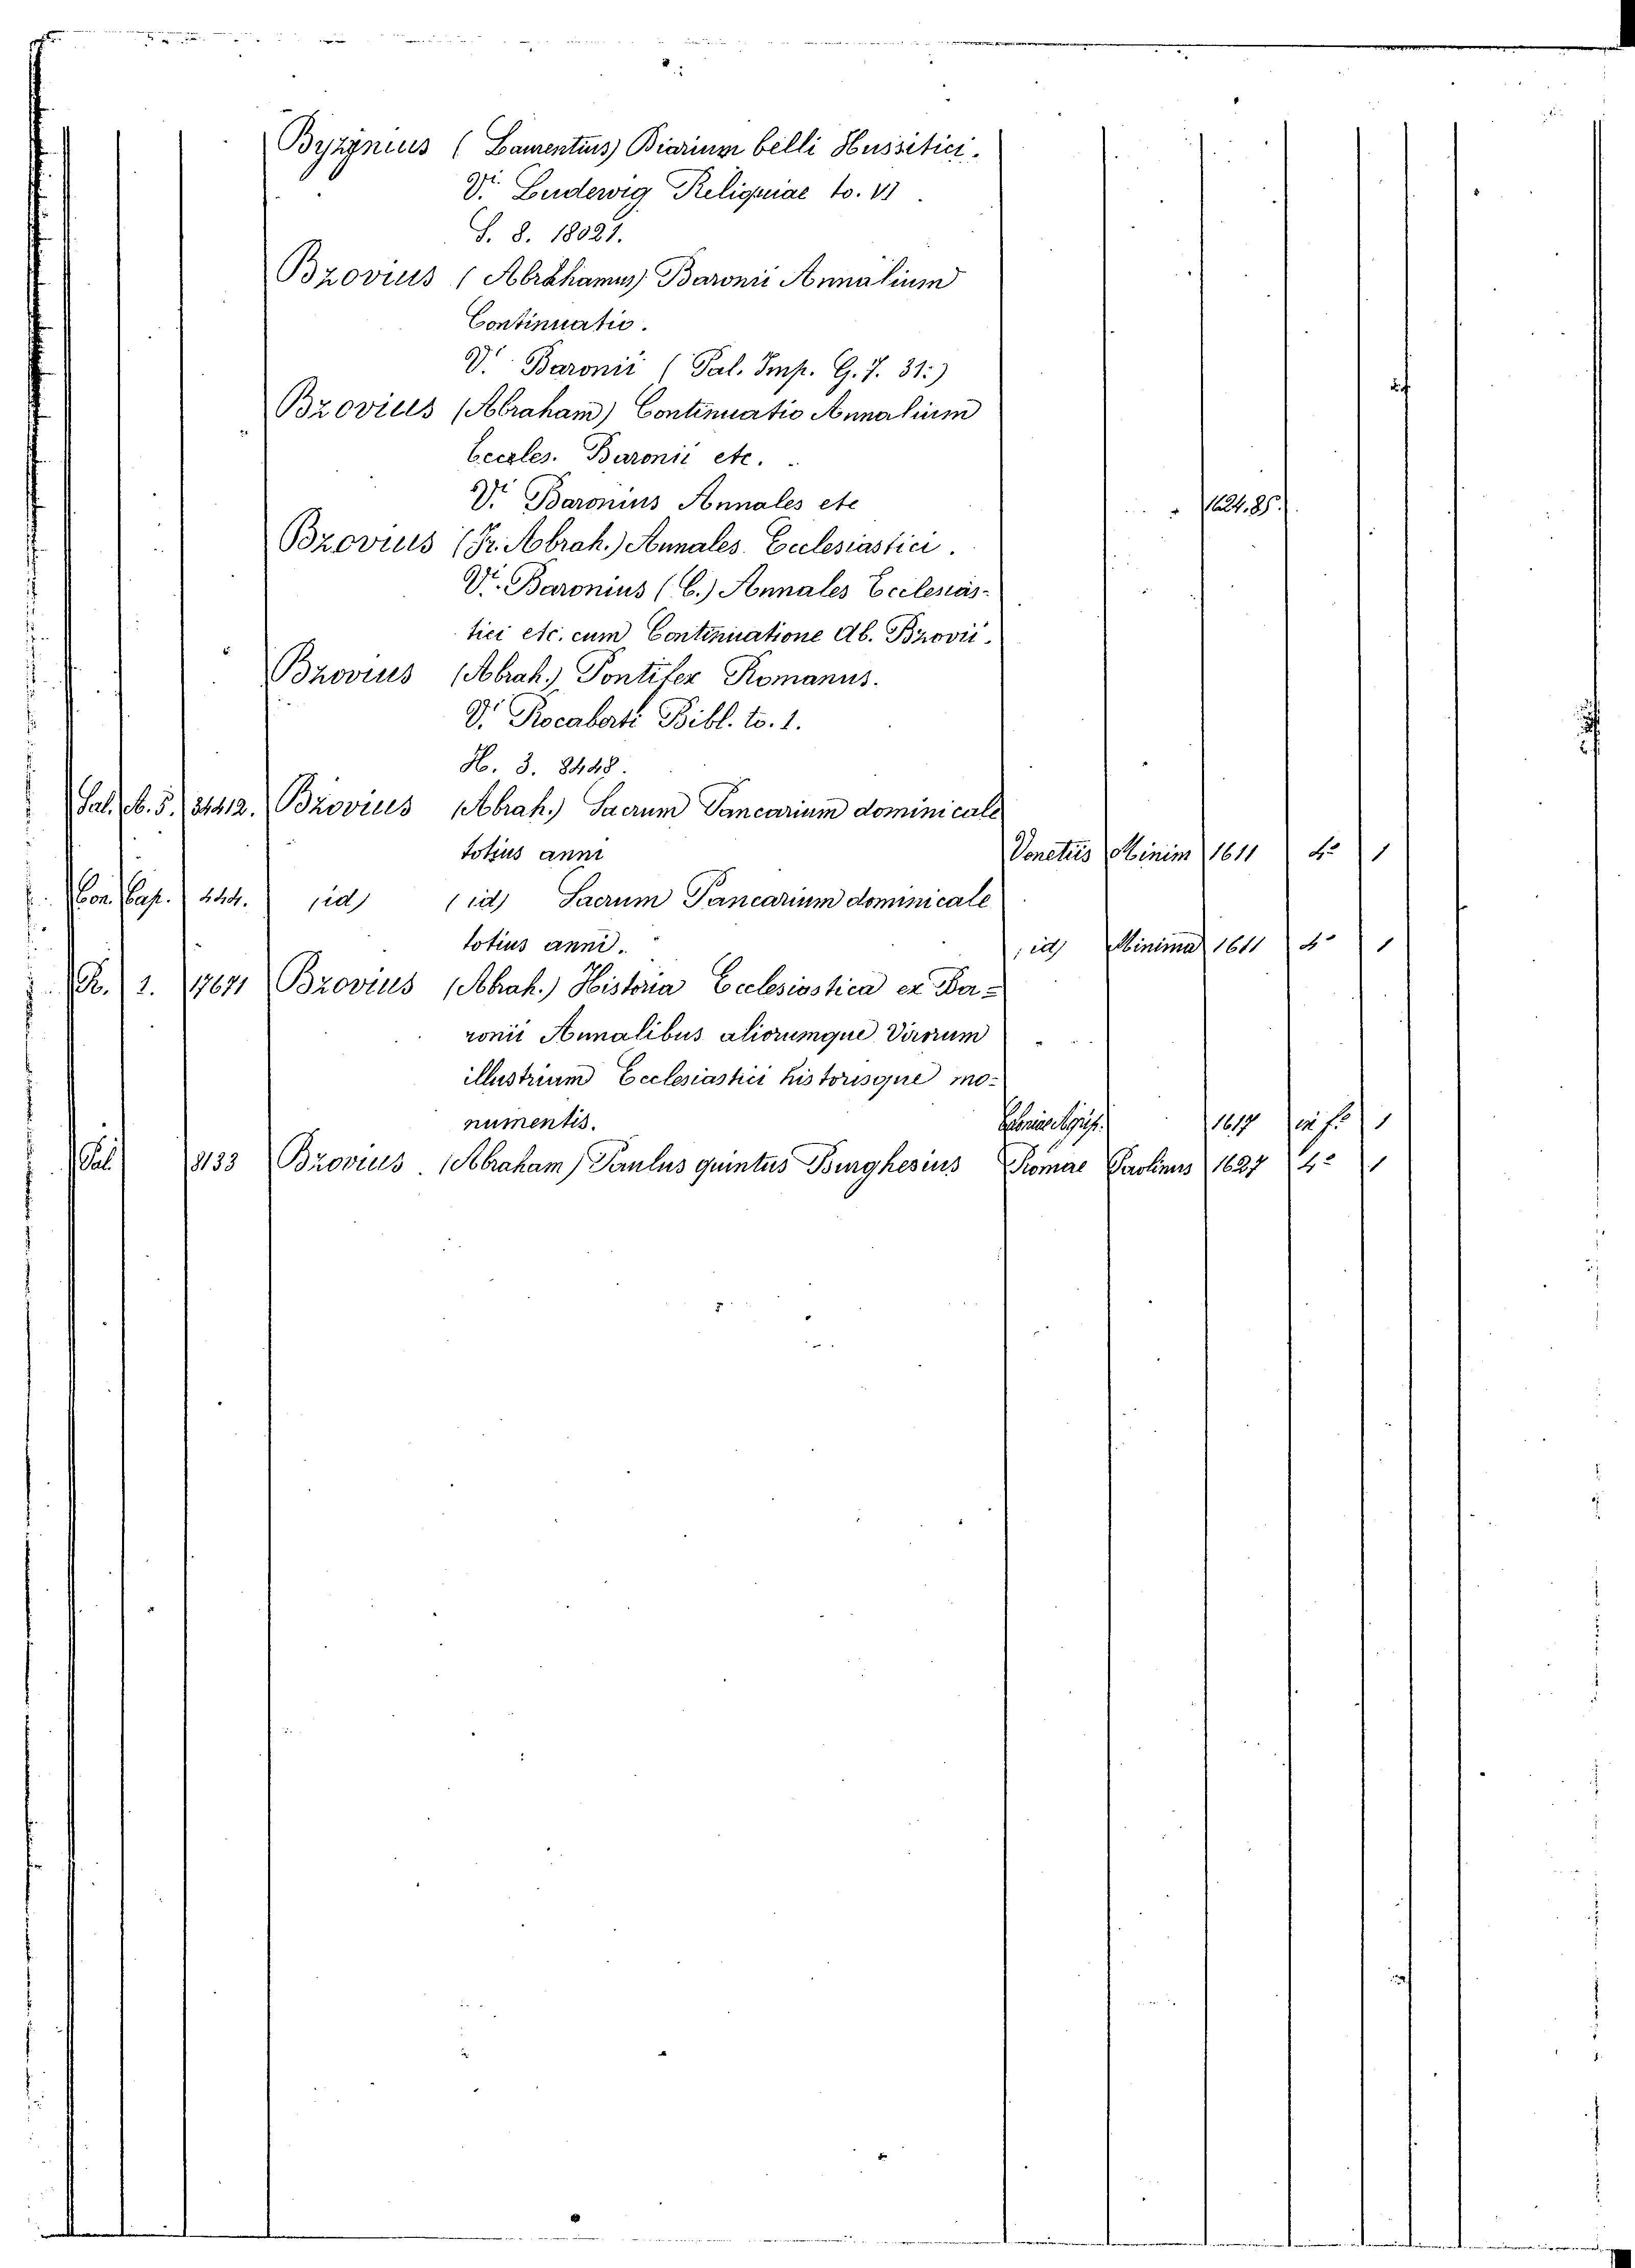 Byzynius (Laurentius) Diarium belli Hussitici.
Vi. Ludewig Reliquiae to. VI.
S. 8. 18021.
Bzovius (Abrahamus) Baronii Annalium
Continuatio.
Vi. Baronii (Pal. Imp. G. 7. 31:)
Bzovius (Abraham) Continuatio Annalium
Eccles. Baronii etc.
Vi Baronius Annales etc 1624.85.
Bzovius (Fr. Abrah.) Annales Ecclesiastici.
Vi. Baronius (C.) Annales Ecclesias-
tici etc. cum Continuatione Ab. Bzovii.
Bzovius (Abrah.) Pontifex Romanus.
Vi Rocaberti Bibl. to. 1.
H. 3. 8448.
Sal. 5. Bzovius (Abrah.) Sacrum Pancarium dominicale
totius anni Venetiis Minim 1611 4o 1
Con. Cap. 444. (id) (id) Sacrum Pancarium dominicale
totius anni. (id) Minima 1611 4o 1
R. 2. 17671 Bzovius (Abrah.) Historia Ecclesiastica ex Ba=
ronii Annalibus aliorumque Virorum
illustrium Ecclesiastici historisque mo=
numentis. Coloniae Agrip. 1617 in fo 1
Sal. 8133 Bzovius. (Abraham) Paulus quintus Burghesius Romae 1627 4o 1